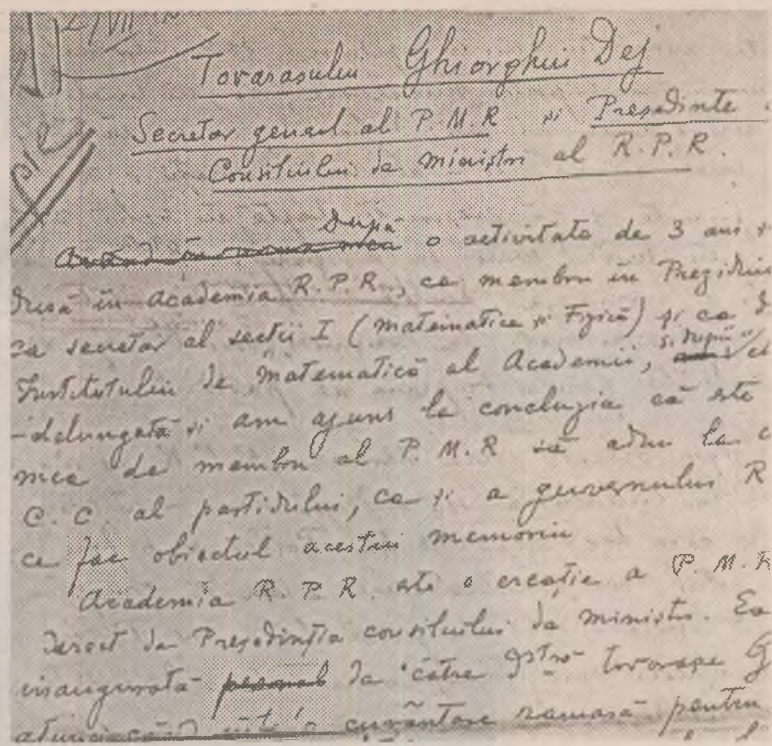 Tovarasului Ghiorghiu Dej
Secretar general al P.M.R și Președinte
Consiliului de miniștri al R.P.R.
După
o activitate de 3 ani
dusă în Academia R.P.R., ca membru în Prezidiu
ca secretar al secții I (matematice și Fizică) și ca d
Institutului de Matematică al Academii, și după
-delungată și am ajuns la concluzia că este
mea de membru al P.M.R să aduc la c
C.C. al partidului, ca și a guvernului R
ce fac obiectul acestui memoriu
Academia R.P.R. este o creație a P.M.R
direct de Președinția consiliului de miniștri. Ea
inaugurată personal de către Dstră tovarașe G
atunci când într'o cuvântare ramasă pentru